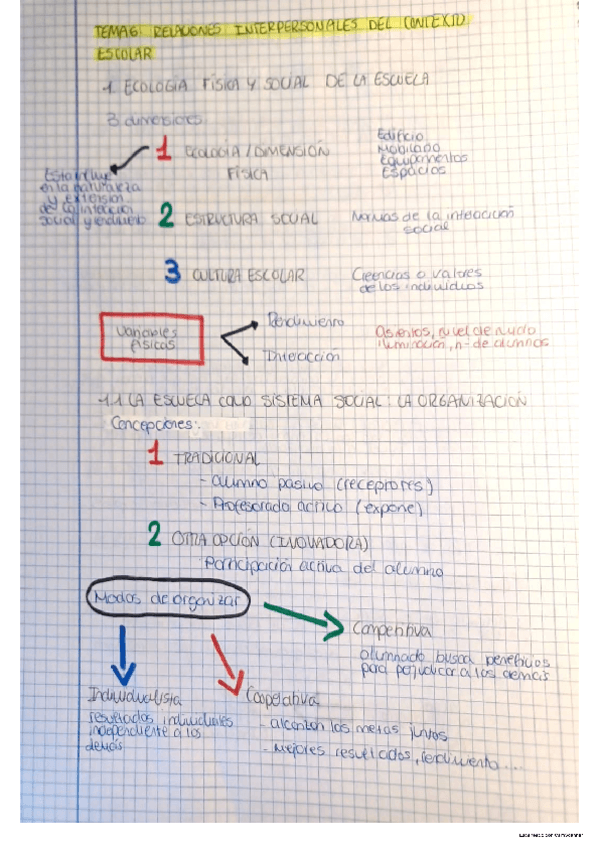 TEMA6: RELACIONES INTERPERSONALES DEL CONTEXTO
ESCOLAR
1. ECOLOGÍA FÍSICA Y SOCIAL DE LA ESCUELA
3 dimensiones
1 ECOLOGÍA/DIMENSIÓN
FÍSICA
Edificio
Mobiliario
Equipamentos
Espacios
Esta influye
en la naturaleza
y extensión
de la interacción
social y rendimiento
2 ESTRUCTURA SOCIAL
Normas de la interacción
social
3 CULTURA ESCOLAR
Creencias o valores
de los individuos
Variables
físicas
Rendimiento
Interacción
Asientos, nivel de ruido
iluminación, nº de alumnos
1.1 LA ESCUELA COMO SISTEMA SOCIAL: LA ORGANIZACIÓN
Concepciones:
1 TRADICIONAL
- Alumno pasivo (receptores)
- Profesorado activo (expone)
2 OTRA OPCIÓN (INNOVADORA)
Participación activa del alumno
Modos de organizar
Competitiva
alumnado busca beneficios
para perjudicar a los demás
Individualista
resultados individuales
independiente a los
demás
Cooperativa
- alcanzan las metas juntos
- Mejores resultados, rendimiento....